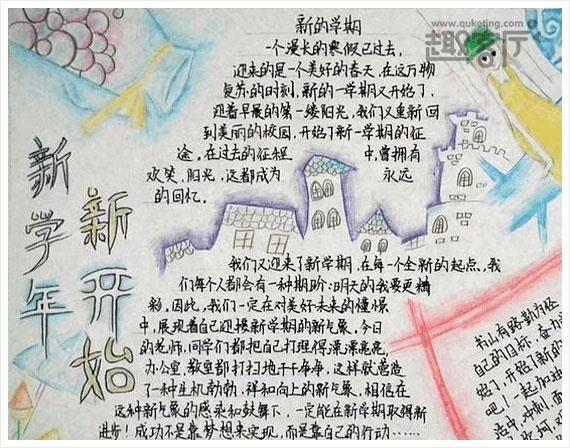 www.quketing.com
趣客厅
新的学期
一个漫长的寒假已过去,
迎来的是一个美好的春天,在这万物
复苏的时刻,新的一学期又开始了,
迎着早晨的第一缕阳光,我们又重新回
到美丽的校园,开始了新一学期的征
途。在过去的征程中,曾拥有
欢笑、阳光,这都成为永远
的回忆。
新学年
新开始
我们又迎来了新学期,在每一个全新的起点,我
们每个人都会有一种期盼:明天的我要更精
彩。因此,我们一定在对美好未来的憧憬
中,展现着自己迎接新学期的新气象,今日
的老师,同学们都把自己打理得漂漂亮亮,
办公室,教室都打扫地干干净净,这样就营造
了一种生机勃勃,祥和向上的新气象,相信在
这种新气象的感染和鼓舞下,一定能在新学期取得新
进步!成功不是靠梦想来实现,而是靠自己的行动······
书山有路勤为径
自己的目标,奋力
始了,开始了新的
吧!一起加油
造中,冲刺,面